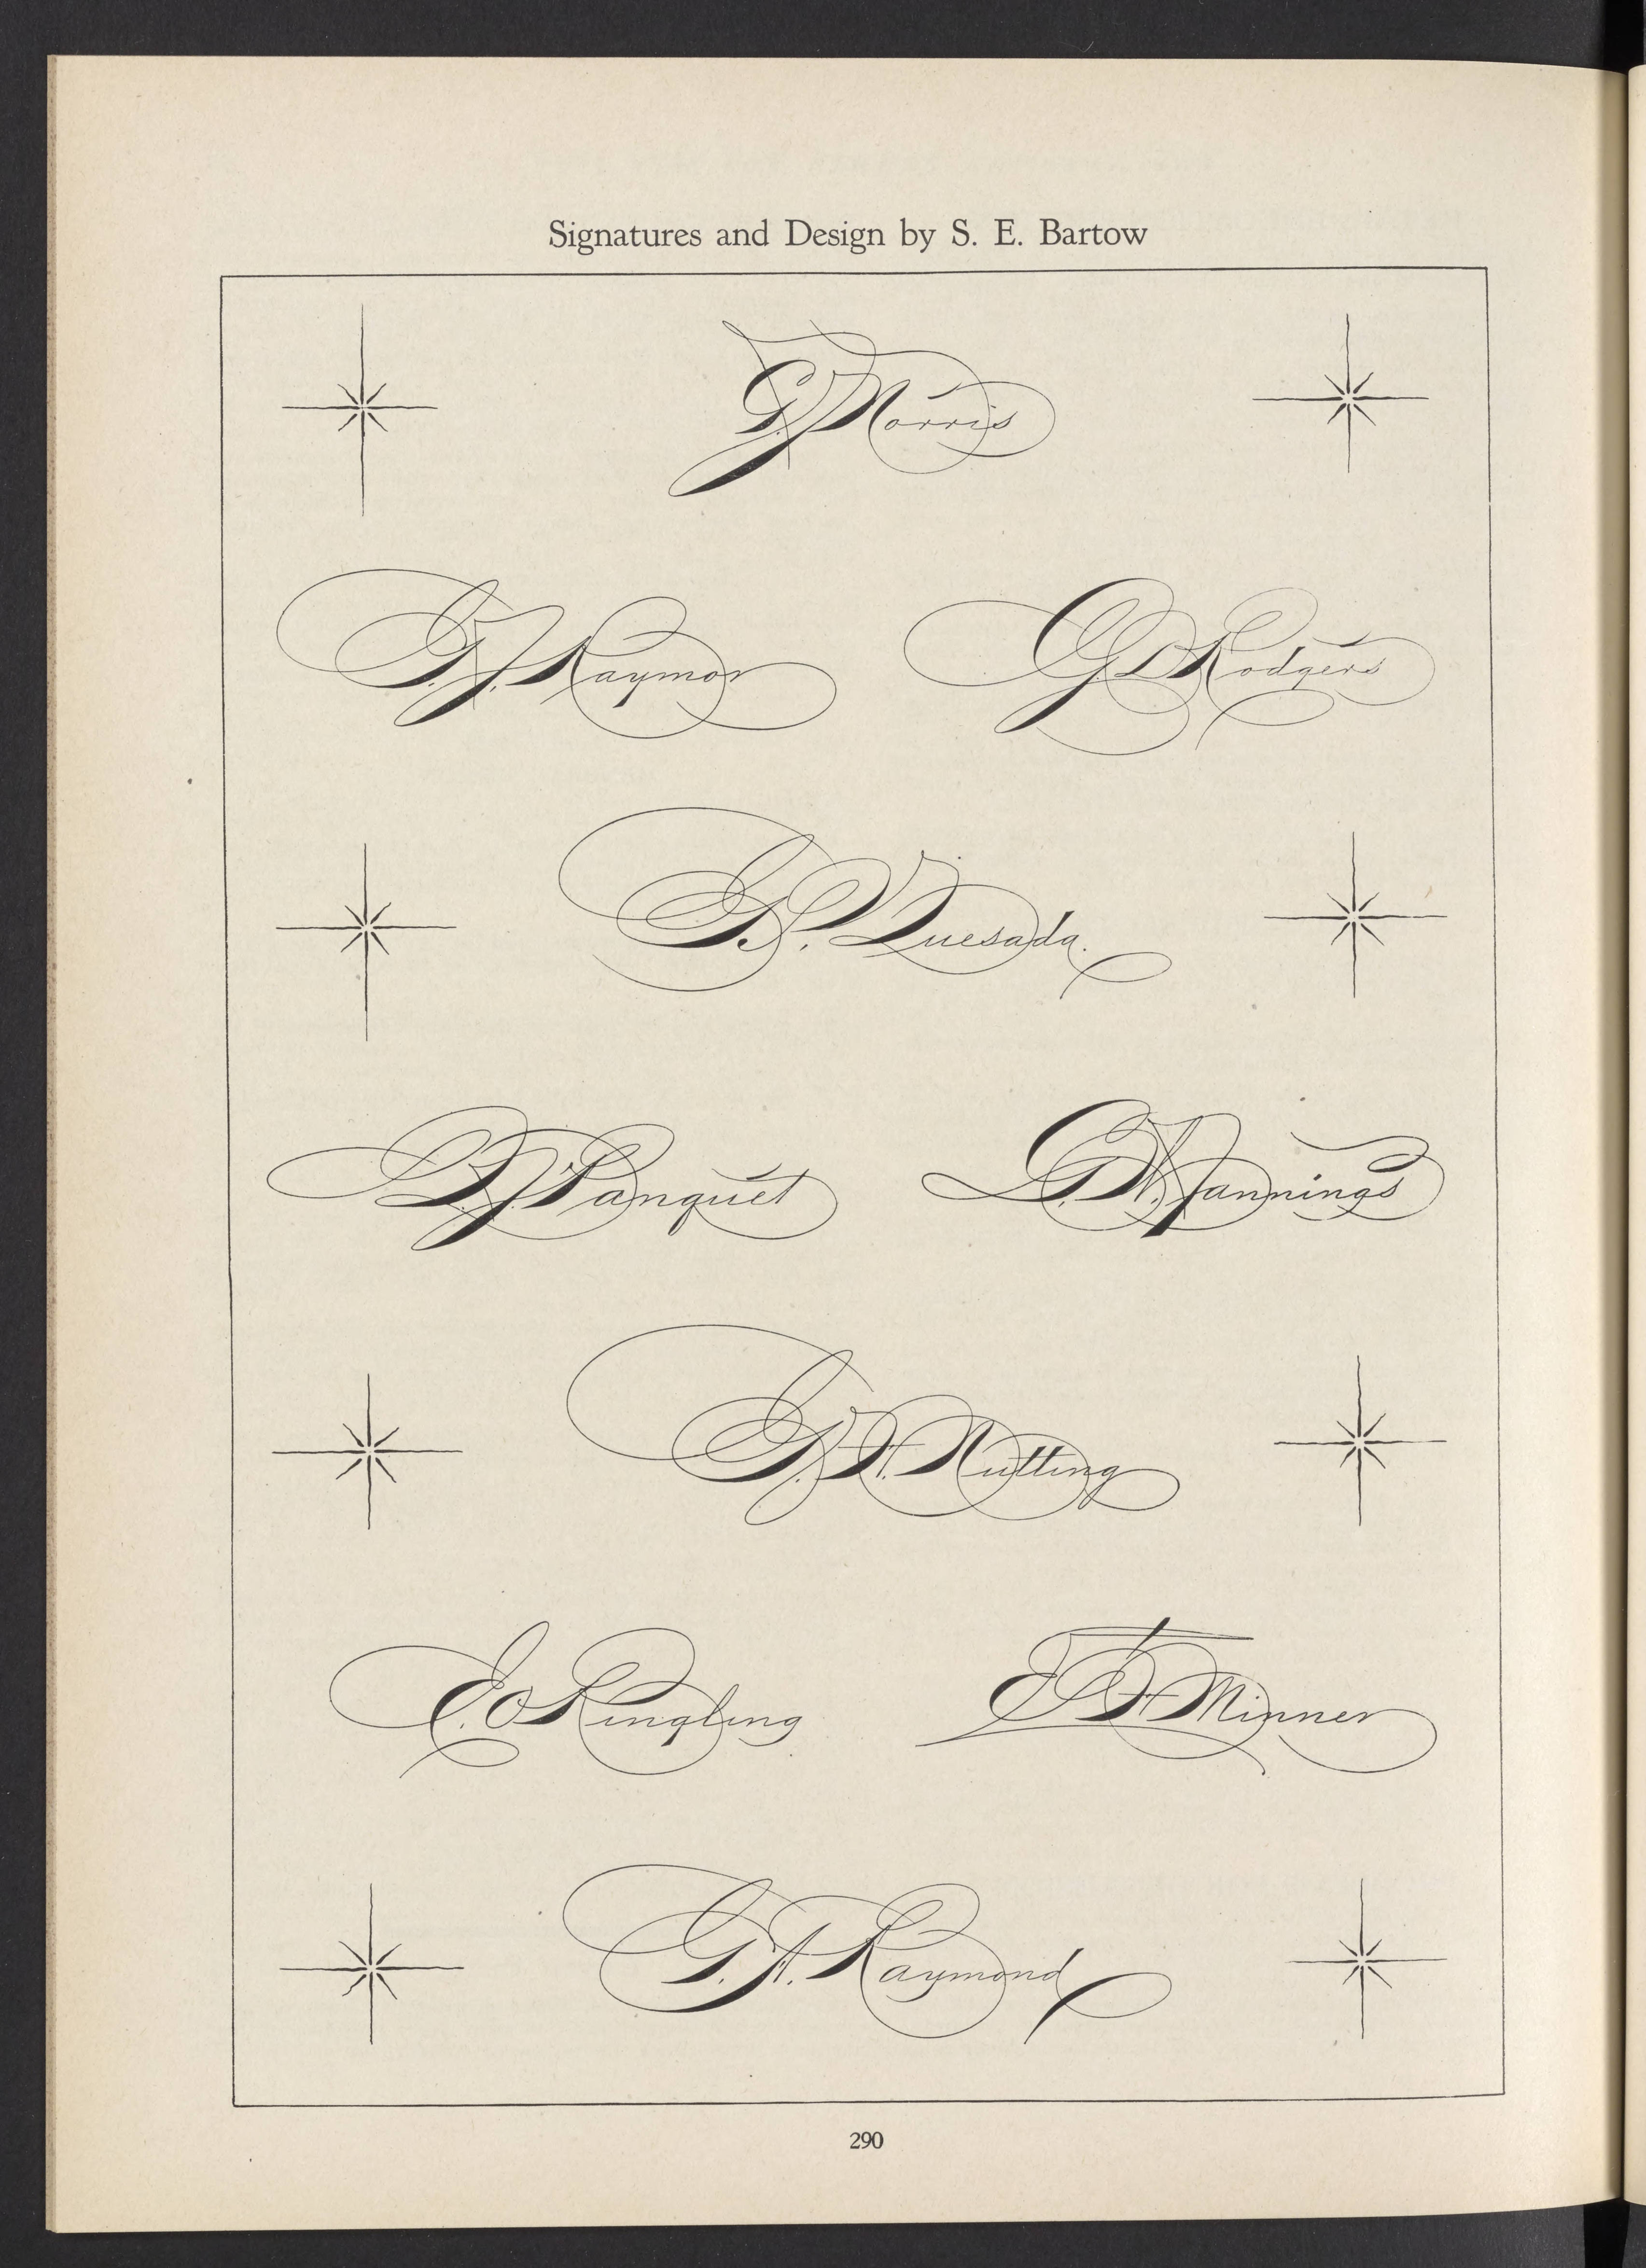 Signatures and Design by S. E. Bartow
G. J. Morris
G. J. Raymor
G D Rodgers
G. S. V. Quesada.
Panquet
G. W. Jannings
Nutting
E. O. Ringling
Minner
G. A. Raymond
290